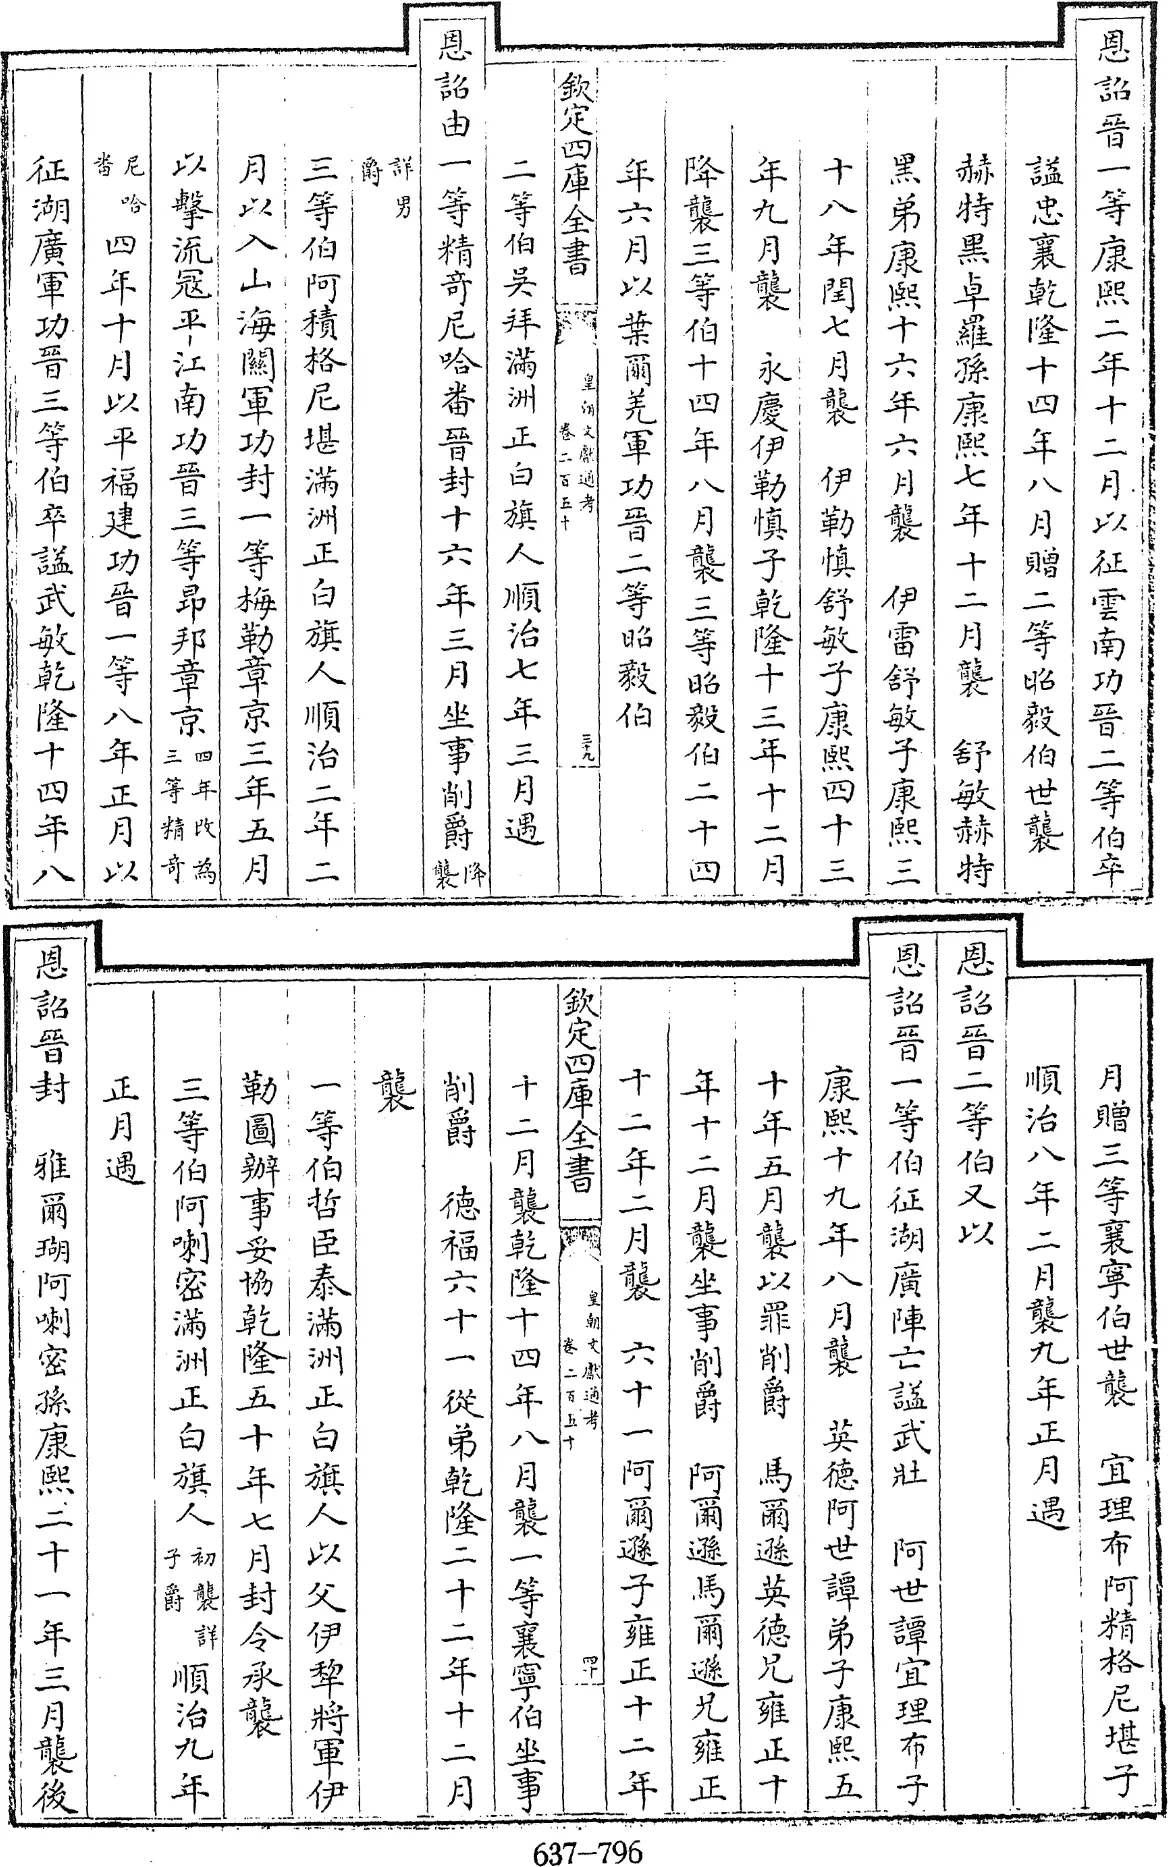 恩詔晉一等康熙二年十二月以征雲南功晉二等伯卒
諡忠襄乾隆十四年八月贈二等昭毅伯世襲
赫特黑卓羅孫康熙七年十二月襲　舒敏赫特
黑弟康熙十六年六月襲　伊雷舒敏子康熙三
十八年閏七月襲　伊勒慎舒敏子康熙四十三
年九月襲　永慶伊勒慎子乾隆十三年十二月
降襲三等伯十四年八月襲三等昭毅伯二十四
年六月以葉爾羌軍功晉二等昭毅伯
欽定四庫全書
皇朝文獻通考
卷二百五十
三十九
二等伯吳拜滿洲正白旗人順治七年三月遇
恩詔由一等精奇尼哈番晉封十六年三月坐事削爵降襲
詳男爵
三等伯阿積格尼堪滿洲正白旗人順治二年二
月以入山海關軍功封一等梅勒章京三年五月
以擊流冦平江南功晉三等昂邦章京四年改為三等精奇
尼哈番四年十月以平福建功晉一等八年正月以
征湖廣軍功晉三等伯卒諡武敏乾隆十四年八
月贈三等襄寧伯世襲　宜理布阿精格尼堪子
順治八年二月襲九年正月遇
恩詔晉二等伯又以
恩詔晉一等伯征湖廣陣亡諡武壯　阿世譚宜理布子
康熙十九年八月襲　英德阿世譚弟子康熙五
十年五月襲以罪削爵　馬爾遜英德兄雍正十
年十二月襲坐事削爵　阿爾遜馬爾遜兄雍正
十二年二月襲　六十一阿爾遜子雍正十二年
欽定四庫全書
皇朝文獻通考
卷二百五十
四十
十二月襲乾隆十四年八月襲一等襄寧伯坐事
削爵　德福六十一從弟乾隆二十二年十二月
襲
一等伯哲臣泰滿洲正白旗人以父伊犂將軍伊
勒圖辦事妥協乾隆五十年七月封令承襲
三等伯阿喇密滿洲正白旗人初襲詳子爵順治九年
正月遇
恩詔晉封　雅爾瑚阿喇密孫康熙二十一年三月襲後
637-796